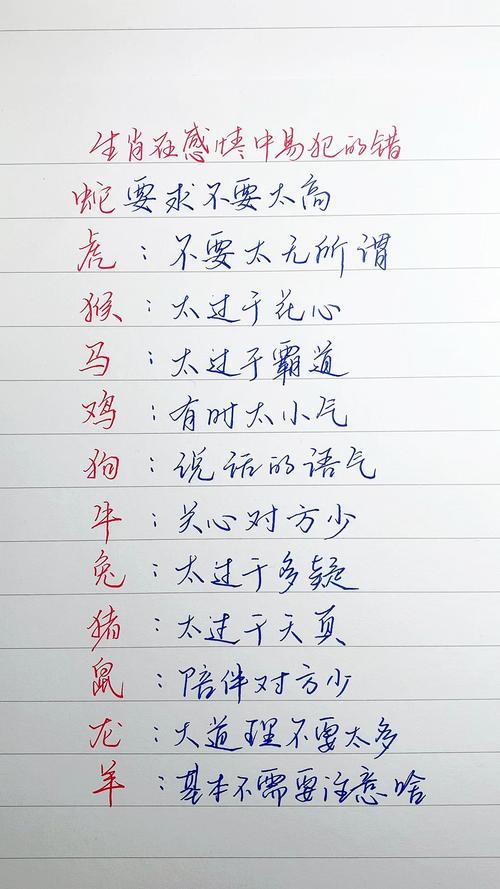 生肖在感情中易犯的错
蛇要求不要太高
虎：不要太无所谓
猴：太过于花心
马：太过于霸道
鸡：有时太小气
狗：说话的语气
牛：关心对方少
兔：太过于多疑
猪：太过于天真
鼠：陪伴对方少
龙：大道理不要太多
羊：基本不需要注意啥